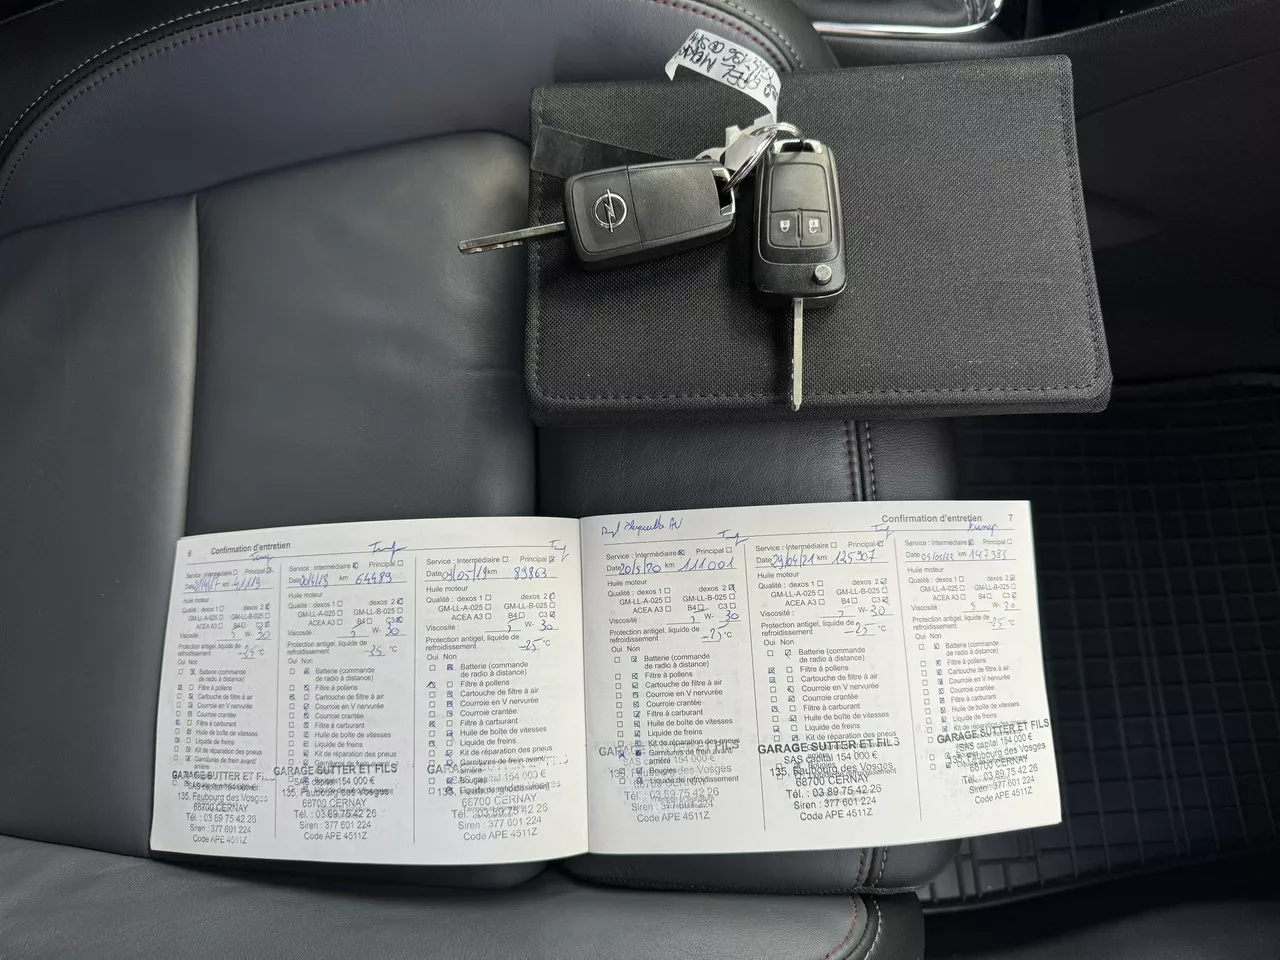 OPEL MOKKA
6 Confirmation d'entretien
Service : Intermédiaire Principal
km 41119
Huile moteur
Qualité : dexos 1 dexos 2
GM-LL-A-025 GM-LL-B-025
ACEA A3 B4 C3
Viscosité : 5 W- 30
Protection antigel, liquide de
refroidissement -25 °C
Oui Non
Batterie (commande
de radio à distance)
Filtre à pollens
Cartouche de filtre à air
Courroie en V nervurée
Courroie crantée
Filtre à carburant
Huile de boîte de vitesses
Liquide de freins
Kit de réparation des pneus
Garnitures de frein avant/
arrière
GARAGE SUTTER ET FILS
135, Faubourg des Vosges
68700 CERNAY
Tél. : 03 89 75 42 26
Siren : 377 601 224
Code APE 4511Z
Service : Intermédiaire Principal
km 64489
Huile moteur
Qualité : dexos 1 dexos 2
GM-LL-A-025 GM-LL-B-025
ACEA A3 B4 C3
Viscosité : 5 W- 30
Protection antigel, liquide de
refroidissement °C
Oui Non
Batterie (commande
de radio à distance)
Filtre à pollens
Cartouche de filtre à air
Courroie en V nervurée
Courroie crantée
Filtre à carburant
Huile de boîte de vitesses
Liquide de freins
Kit de réparation des pneus
Garnitures de frein avant/
GARAGE SUTTER ET FILS
SAS capital 154 000 €
135, Faubourg des Vosges
68700 CERNAY
Tél. : 03 89 75 42 26
Siren : 377 601 224
Code APE 4511Z
Service : Intermédiaire Principal
Date 03/05/19 km 89863
Huile moteur
Qualité : dexos 1 dexos 2
GM-LL-A-025 GM-LL-B-025
ACEA A3 B4 C3
Viscosité : 5 W- 30
Protection antigel, liquide de
refroidissement -25 °C
Oui Non
Batterie (commande
de radio à distance)
Filtre à pollens
Cartouche de filtre à air
Courroie en V nervurée
Courroie crantée
Filtre à carburant
Huile de boîte de vitesses
Liquide de freins
Kit de réparation des pneus
Garnitures de frein avant/
arrière
Bougies
Liquide de refroidissement
68700 CERNAY
Tél. : 03 89 75 42 26
Siren : 377 601 224
Code APE 4511Z
Plaquettes AV
Confirmation d'entretien 7
Service : Intermédiaire Principal
Date 20/5/20 km 111001
Huile moteur
Qualité : dexos 1 dexos 2
GM-LL-A-025 GM-LL-B-025
ACEA A3 B4 C3
Viscosité : 5 W- 30
Protection antigel, liquide de
refroidissement -25 °C
Oui Non
Batterie (commande
de radio à distance)
Filtre à pollens
Cartouche de filtre à air
Courroie en V nervurée
Courroie crantée
Filtre à carburant
Huile de boîte de vitesses
Liquide de freins
Kit de réparation des pneus
Garnitures de frein avant/
arrière
Bougies
Liquide de refroidissement
68700 CERNAY
Tél. : 03 89 75 42 26
Code APE 4511Z
Service : Intermédiaire Principal
Date 29/04/21 km 125907
Huile moteur
Qualité : dexos 1 dexos 2
GM-LL-A-025 GM-LL-B-025
ACEA A3 B4 C3
Viscosité : 5 W- 30
Protection antigel, liquide de
refroidissement -25 °C
Oui Non
Batterie (commande
de radio à distance)
Filtre à pollens
Cartouche de filtre à air
Courroie en V nervurée
Courroie crantée
Filtre à carburant
Huile de boîte de vitesses
Liquide de freins
Kit de réparation des pneus
GARAGE SUTTER ET FILS
SAS capital 154 000 €
135, Faubourg des Vosges
68700 CERNAY
Tél. : 03 89 75 42 26
Siren : 377 601 224
Code APE 4511Z
Service : Intermédiaire Principal
km 147383
Huile moteur
Qualité : dexos 1 dexos 2
GM-LL-A-025 GM-LL-B-025
ACEA A3 B4 C3
Viscosité : 5 W-
Protection antigel, liquide de
refroidissement -25 °C
Oui Non
Batterie (commande
de radio à distance)
Filtre à pollens
Cartouche de filtre à air
Courroie en V nervurée
Courroie crantée
Filtre à carburant
Huile de boîte de vitesses
Liquide de freins
Kit de réparation des pneus
GARAGE SUTTER ET FILS
SAS capital 154 000 €
135, Faubourg des Vosges
68700 CERNAY
Tél. : 03 89 75 42 26
Siren : 377 601 224
Code APE 4511Z